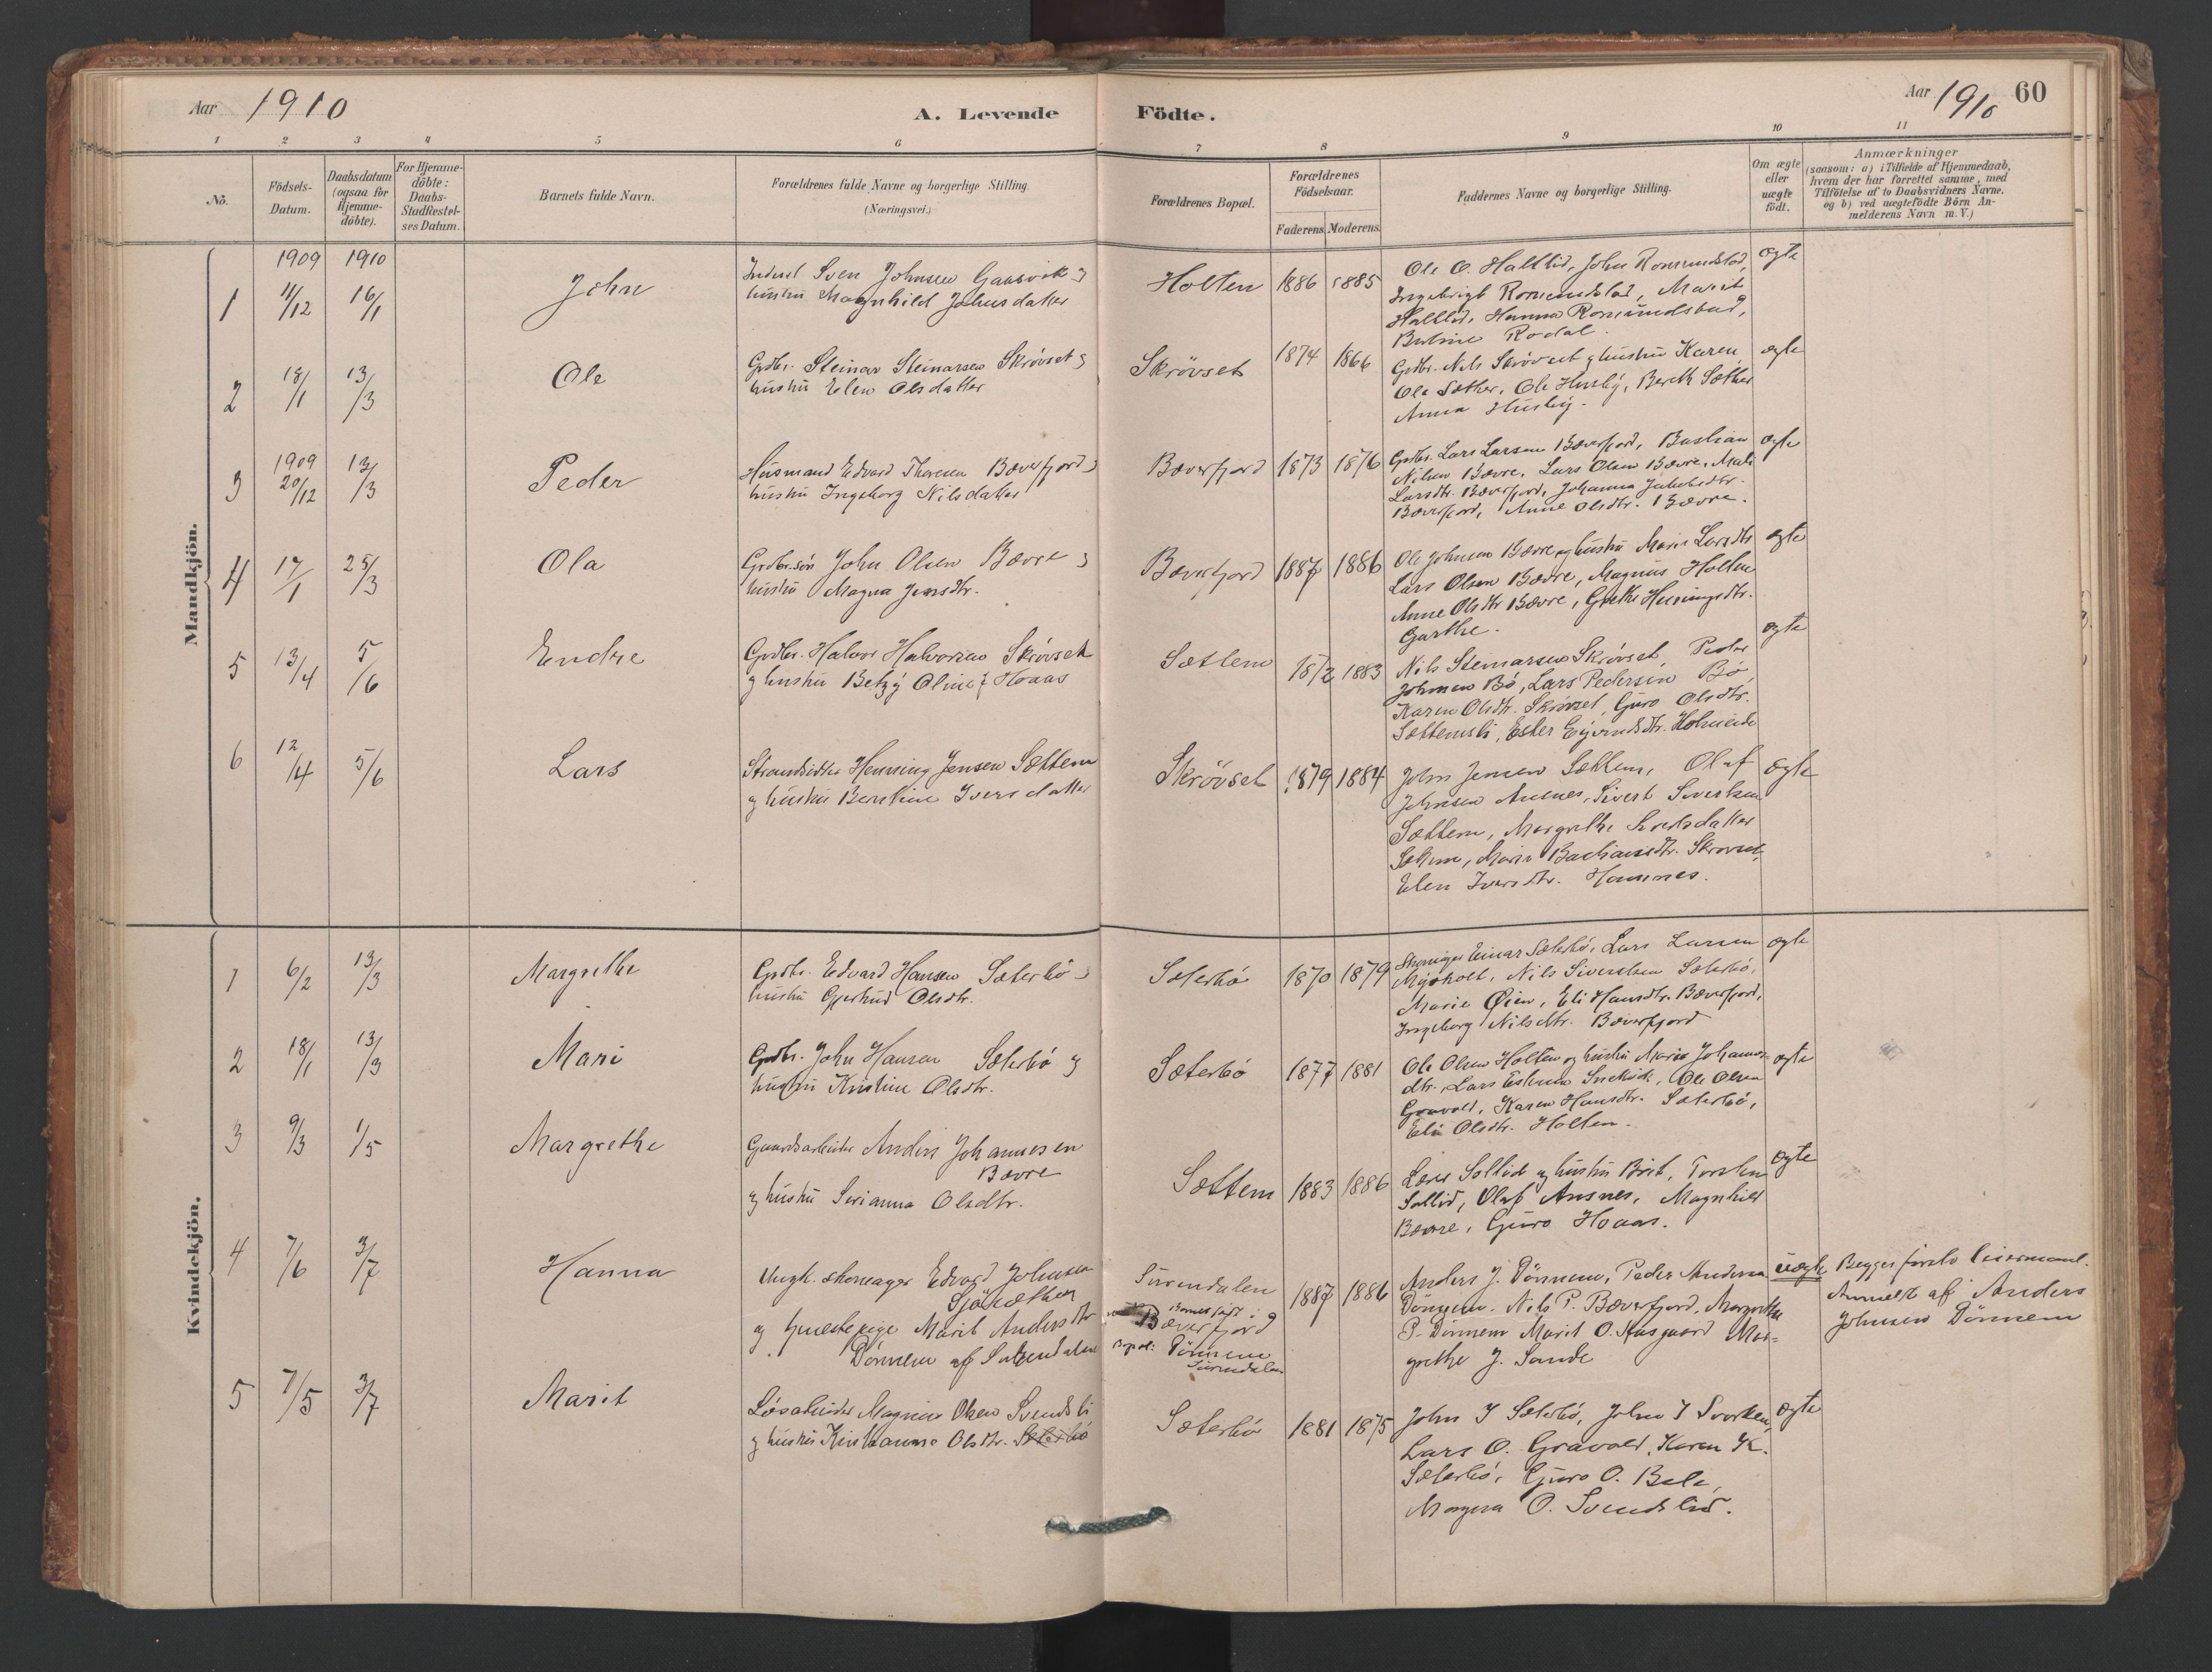 Aar 1910
A. Levende Födte.
Aar 1910 60
1 2 3 4 5 6 7 8 9 10 11
No.
Födsels-Datum.
Daabsdatum (ogsaa for Hjemme-döbte).
For Hjemme-döbte: Daabs-Stadfæstel-ses Datum.
Barnets fulde Navn.
Forældrenes fulde Navne og borgerlige Stilling.
(Næringsvei.)
Forældrenes Bopæl.
Forældrenes Födselsaar.
Faderens. Moderens.
Faddernes Navne og borgerlige Stilling.
Om ægte eller uægte født.
Anmærkninger
(saasom: a) i Tilfælde af Hjemmedaab, hvem der har forrettet samme, med Tilföielse af to Daabsvidners Navne, og b) ved uægtefödte Börn Anmelderens Navn m. V.)
Mandkjön.
1 1909 11/12 1910 16/1 John
Sven Johnsen Gaasvik
hustru Magnhild Johnsdatter
Holten 1886 1885
Ole O. Halllid, John Romundstad,
Ingebrigt Romundstad, Marit
Halllid, Hanna Romundstad,
Rodal.
ægte
2 18/1 13/3 Ole
Grdbr. Steinar Steinarsen Skrövset
hustru Elen Olsdatter
Skrövset 1874 1866
Grdbr. Nils Skrövset g hustru Karen,
Ole Sæther, Ole Husby, Bereth Sæther
Anna Husby.
ægte
3 1909 20/12 13/3 Peder
Husmand Edvard Thoresen Bæverfjord
hustru Ingeborg Nilsdatter
Bæverfjord 1873 1876
Grdbr. Lars Larsen Bæverfjord, Bastian
Nilsen Bævre, Lars Olsen Bævre, Mali
Larsdtr. Bæverfjord, Johanna Jakobsdtr.
Bæverfjord, Anne Olsdtr. Bævre.
ægte
4 17/1 25/3 Ola
Grdbr.sön John Olsen Bævre
hustru Magna Jensdtr.
Bæverfjord 1887 1886
Ole Johnsen Bævre og hustru Marie Larsdtr
Lars Olsen Bævre, Magnus Holten
Anne Olsdtr Bævre, Grethe Henningsdtr.
Garthe.
ægte
5 13/4 5/6 Endre
Grdbr. Halvor Halvorsen Skrövset
g hustru Betzy Oline f. Hoaas
Sættem 1872 1883
Nils Steinarsen Skrövset, Peder
Johnsen Bö, Lars Pedersen Bö,
Karen Olsdtr. Skrövset, Guro Olsdtr.
Sættemsli, Ester Eyvindsdtr. Holmeide
ægte
6 12/4 5/6 Lars
Strandsidder Henning Jensen Sættem
g hustru Berntine Iversdatter
Skrövset 1879 1884
John Jensen Sættem, Olaf
Johnsen Ansnes, Sivert Sivertsen
Sættem, Margrethe Sivertsdatter
Sættem, Marie Bastiansdtr. Skrövset,
Elen Iversdtr. Hamnes.
ægte
Kvindekjön.
1 6/2 13/3 Margrethe
Grdbr. Edvard Hansen Sæterbö
hustru Gjertrud Olsdtr.
Sæterbö 1870 1879
Skomager Einar Sæterbö, Lars Larsen
Myrholt, Nils Sivertsen Sæterbö,
Marie Øien, Eli Hansdtr. Bæverfjord,
Ingeborg Nilsdtr. Bæverfjord
ægte
2 18/1 13/3 Mari
Grdbr. John Hansen Sæterbö g
hustru Kristine Olsdtr.
Sæterbö 1877 1881
Ole Olsen Holten og hustru Marie Johannesdtr., Lars Olsen
Gravvold, Karen Hansdtr. Sæterbö,
Eli Olsdtr. Holten.
ægte
3 9/3 1/5 Margrethe
Gaardsarbeider Anders Johannesen
Bævre
g hustru Serianna Olsdtr.
Sættem 1883 1886
Lars Sollid og hustru Brit, Torsten
Sollid, Olaf Ansnes, Magnhild
Bævre, Guro Hoaas.
ægte
4 7/6 3/7 Hanna
Ungk. skomager Edvard Johnsen
Sjösæther
og tjenestepige Marit Andersdtr
Dönnem af Surendalen
Surendalen
Barnet födt i Bæverfjord
Bopæl: Dönnem Surendalen
1887 1886
Anders J. Dönnem, Peder Andersen
Dönnem, Nils P. Bæverfjord, Margrethe
P. Dönnem Marit O. Aasgaard Mar-
grethe J. Sande
uægte
Begges første leiermaal.
Anmeldt af Anders
Johnsen Dönnem
5 7/5 3/7 Marit
Lösarbeider Magnus Olsen Svendsli
g hustru Kristianna Olsdtr. Sæterbö
Sæterbö 1881 1875
John J Sæterbö, John J Svorken,
Lars O. Gravvold, Karen K.
Sæterbö, Guro O. Bele,
O. Svendslid.
ægte